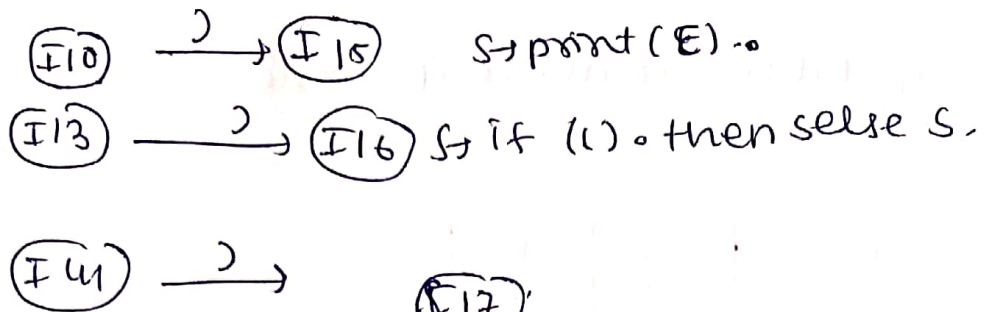 I10 ) I15 S→ print (E).
I13 ) I16 S→ if (L). then S else S.
I41 )
I17